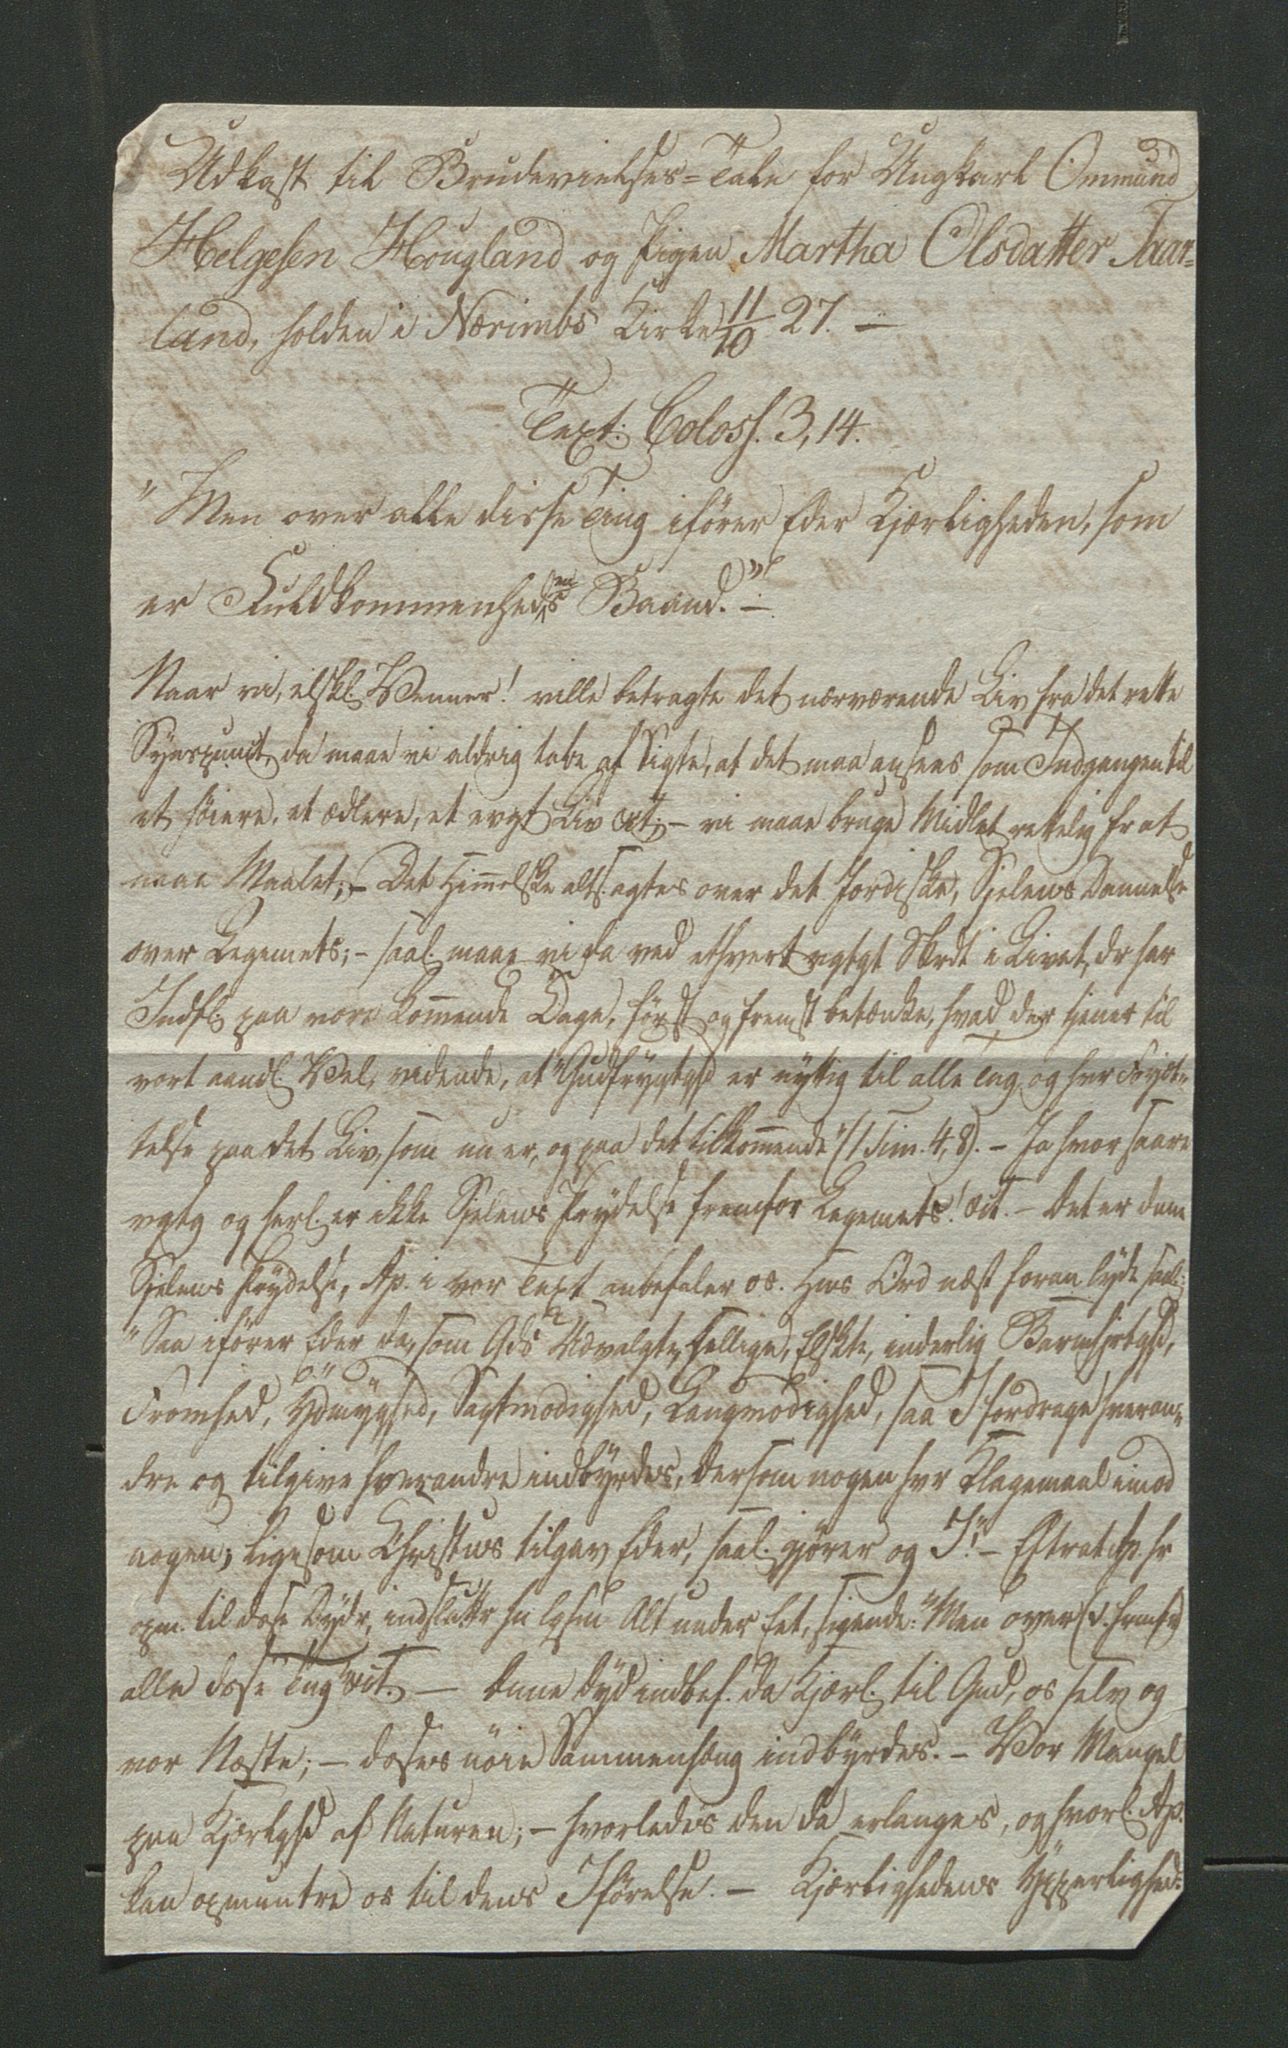 Udkast til Brudevielses=Tale for Ungkarl Ommund
Helgesen Hougland og Pigen Martha Olsdatter Taar-
land, holden i Nærimbs Kirke 11/10 27. —
Text: Coloss. 3, 14.
"Men over alle disse Ting ifører Eder Kjærligheden, som
er Fuldkommenhedens Baand." —
Naar vi, elskl. Venner! ville betragte det nærværende Liv fra det rette
Synspunct, da maae vi aldrig tabe af Sigte, at det maa ansees som Indgangen til
et høiere, et ædlere, et evgt Liv &ct; — vi maae bruge Midlet rettelig fr at
naae Maalet; — Det Himelske alts. agtes over det Jordiske, Sjelens Dannelse
over Legemets; — saal. maae vi da ved ethvert vgtgt Skrdt i Livet, dr har
Indfl. paa vore komende Dage, først og fremst betænke, hvad der tjener til
vort aandl. Vel, vidende, at "Gudfrygtghd er nyttig til alle Tng og hvr Forjæt-
telse paa det Liv, som nu er, og paa det tilkomende" (1 Tim. 4, 8). — Ja hvor saare
vgtg og herl. er ikke Sjelens Prydelse fremfor Legemets! &ct. — Det er denne
Sjelens Prydelse, Ap. i vor Text anbefaler os. Hns Ord næst foran lyde saal:
"Saa ifører Eder da, som Gds Udvalgte, hellige, Elskte, inderlig Barmhjrtghd,
Fromhed, Ydmyghed, Sagtmodighed, Langmodighed, saa I fordrage hveran-
dre og tilgive hverandre indbyrdes, dersom nogen hvr Klagemaal imod
nogen; ligesom Christus tilgav Eder, saal. gjører og I!" — Eftrat
opm. til dsse Dydr, indsluttr hn Alt under Eet, sigende: "Men over (d. fremfr)
alle dsse Tng" &ct. — Denne Dyd indbef. da Kjærl. til Gud, os selv og
vor Næste; — disses nöie Sammenhæng indbyrdes. — Vor Mangel
paa Kjærlghd af Naturen; — hvorledes den da erlanges, og hvorl. Ap.
kan opmuntre os til dens Iførelse. — Kjærlighedens Ypperlighed: